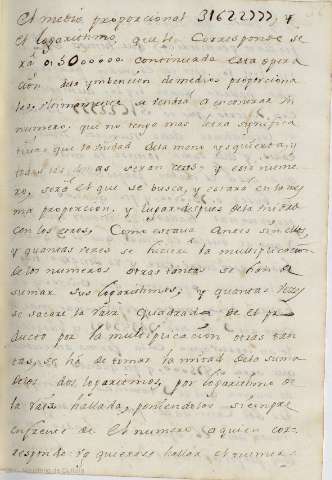 el medio proporcional 31622777, y
el logaritmo que le corresponde se
rá 0,5000000 continuada esta opera
ción de medios proporciona
les, se vendrá a encontrar un
numero, que no tenga mas letra significa
tiva que la unidad de la mano izquierda, y
todas las demas seran ceros y este nume
ro, será el que se busca, y estará en la mis
ma proporción, y lugar despues de la unidad
con los zeros, como estava antes sin ellos
y quantas veces se hiciere la multiplicación
de los numeros otras tantas se han de
sumar sus logaritmos, y quantas vezes
se sacare la raiz quadrada de el pro
ducto por la multiplicación otras tan
tas, se ha de tomar la mitad de la suma
de los dos logaritmos, por logaritmo de
la raiz hallada, poniendolos siempre
enfrente de el numero a quien cor-
responde. Yo quisiese hallar el numero
Ministerio de Cultura